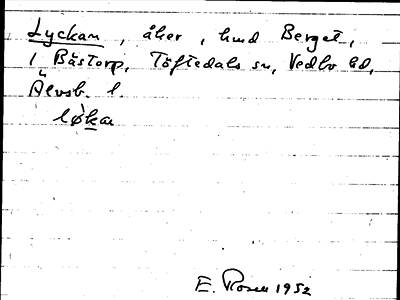 Lyckan, åker, hmd Berget,
1 Bästorp, Töftedals sn, Vedbo hd,
Älvsb. l.
lø̀kan
E. Rosell 1952